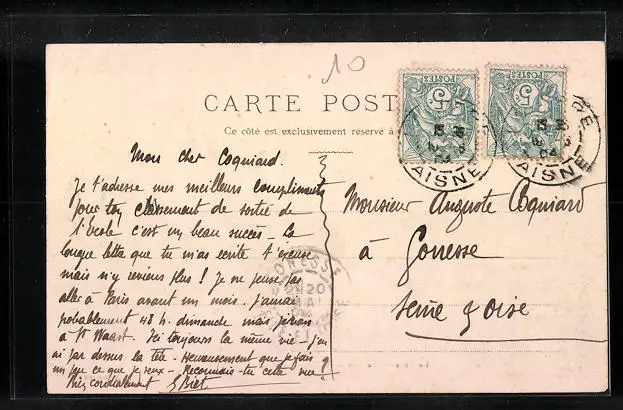 10
CARTE POST
Ce côté est exclusivement réservé à
POSTES
5
POSTES
5
AISNE
AISNE
Mon cher Coquiard.
Je t'adresse mes meilleurs compliments
pour ton classement de sortie de
l'école c'est un beau succès - La
longue lettre que tu m'as écrite t'excuse
mais n'y reviens plus ! Je ne pense pas
aller à Paris avant un mois. J'aurai
probablement 48 h. dimanche mais j'irai
à St Waast. Ici toujours la même vie - j'en
ai par dessus la tête - Heureusement que je fais
un peu ce que je veux - Reconnais-tu cette vue ?
Très cordialement
GONESSE
20
MAI
Monsieur Auguste Coquiard
à Gonesse
Seine & Oise